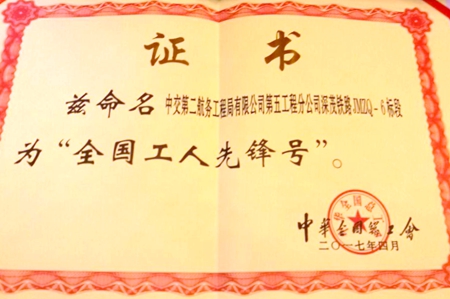 证书
兹命名 中交第二航务工程局有限公司第五工程分公司深茂铁路JMZQ-6标段
为“全国工人先锋号”。
中华全国总工会
二〇一七年四月